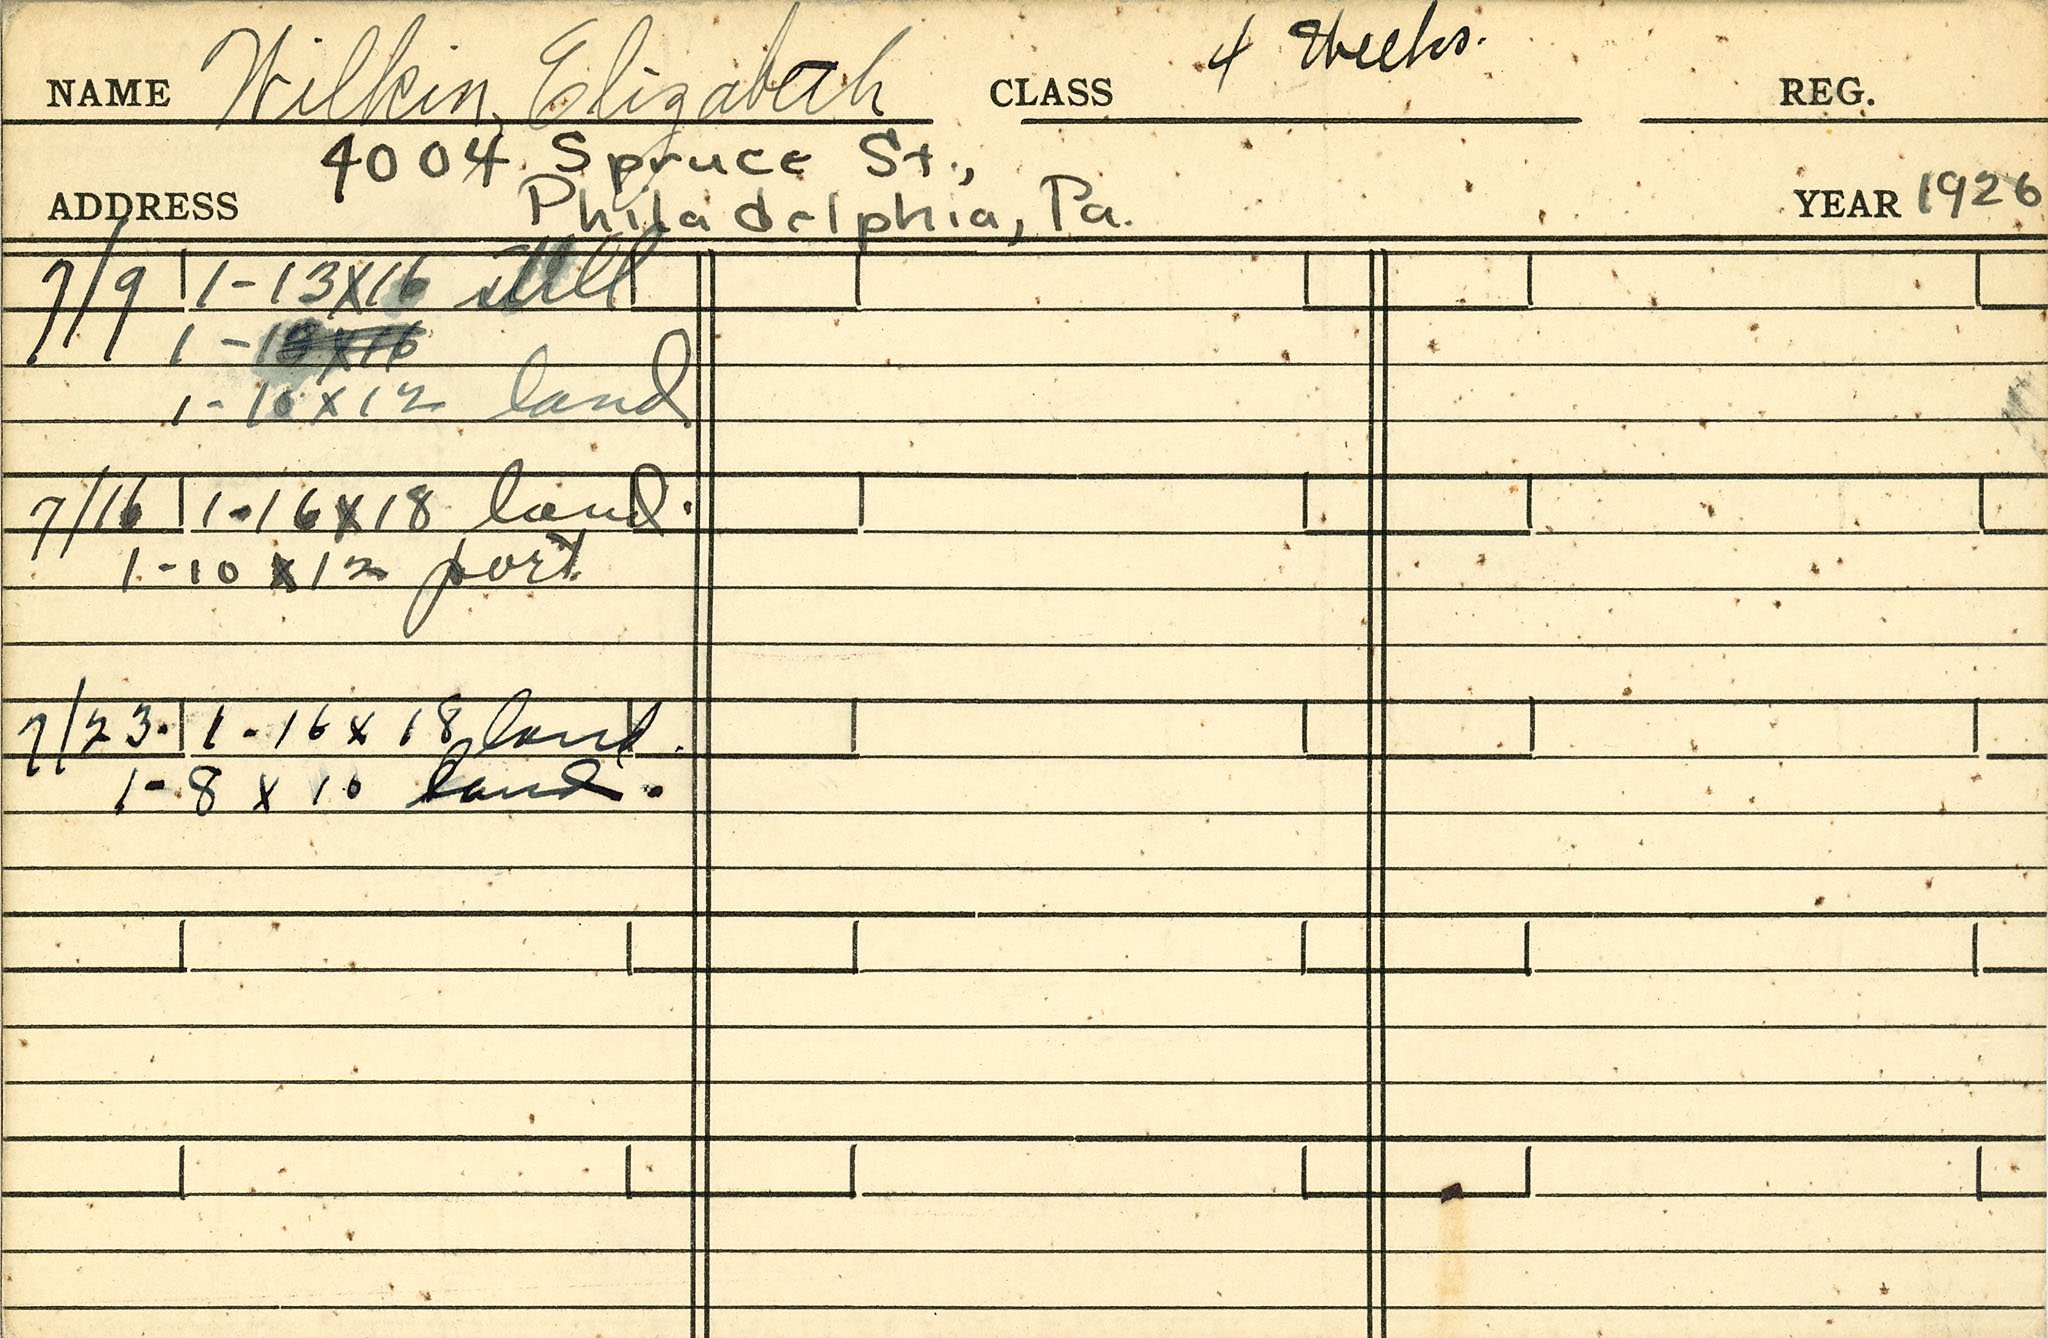 NAME Wilkin, Elizabeth CLASS 4 Weeks. REG.
4004 Spruce St.,
ADDRESS Philadelphia, Pa. YEAR 1926
7/9 1-13x16 still
1-
1-10x12 land
7/16 1-16x18 land.
1-10x12 port.
7/23. 1-16x18 land.
1-8x10 land.